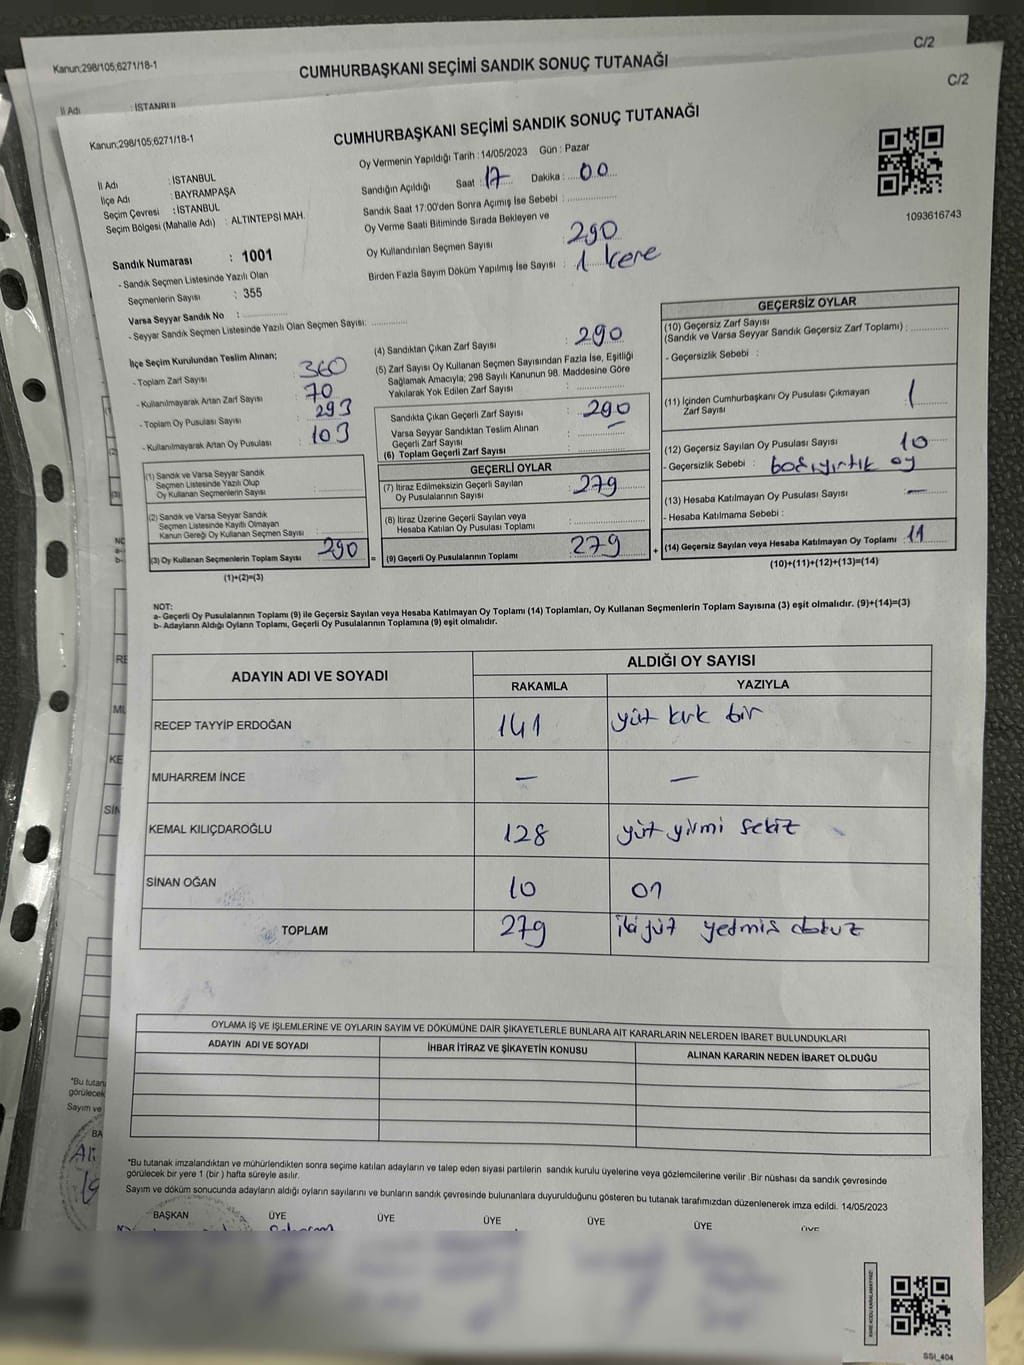 Kanun;298/105;6271/18-1
CUMHURBAŞKANI SEÇİMİ SANDIK SONUÇ TUTANAĞI
C/2
İl Adı : İSTANBUL
Kanun;298/105;6271/18-1
CUMHURBAŞKANI SEÇİMİ SANDIK SONUÇ TUTANAĞI
C/2
Oy Vermenin Yapıldığı Tarih : 14/05/2023 Gün : Pazar
İl Adı : İSTANBUL
İlçe Adı : BAYRAMPAŞA
Seçim Çevresi : İSTANBUL
Seçim Bölgesi (Mahalle Adı) : ALTINTEPSİ MAH.
Sandığın Açıldığı Saat : 17 Dakika : 00
Sandık Saat 17:00'den Sonra Açımış İse Sebebi :
Oy Verme Saati Bitiminde Sırada Bekleyen ve
Oy Kullandırılan Seçmen Sayısı : 290
Birden Fazla Sayım Döküm Yapılmış İse Sayısı : 1 kere
1093616743
Sandık Numarası : 1001
- Sandık Seçmen Listesinde Yazılı Olan
Seçmenlerin Sayısı : 355
Varsa Seyyar Sandık No :
- Seyyar Sandık Seçmen Listesinde Yazılı Olan Seçmen Sayısı:
İlçe Seçim Kurulundan Teslim Alınan;
- Toplam Zarf Sayısı 360
- Kullanılmayarak Artan Zarf Sayısı : 70
- Toplam Oy Pusulası Sayısı : 293
- Kullanılmayarak Artan Oy Pusulası : 103
(1) Sandık ve Varsa Seyyar Sandık
Seçmen Listesinde Yazılı Olup
Oy Kullanan Seçmenlerin Sayısı :
(2) Sandık ve Varsa Seyyar Sandık
Seçmen Listesinde Kayıtlı Olmayan
Kanun Gereği Oy Kullanan Seçmen Sayısı :
(3) Oy Kullanan Seçmenlerin Toplam Sayısı 290
(1)+(2)=(3)
(4) Sandıktan Çıkan Zarf Sayısı : 290
(5) Zarf Sayısı Oy Kullanan Seçmen Sayısından Fazla İse, Eşitliği
Sağlamak Amacıyla; 298 Sayılı Kanunun 98. Maddesine Göre
Yakılarak Yok Edilen Zarf Sayısı :
Sandıkta Çıkan Geçerli Zarf Sayısı : 290
Varsa Seyyar Sandıktan Teslim Alınan
Geçerli Zarf Sayısı : —
(6) Toplam Geçerli Zarf Sayısı :
GEÇERLİ OYLAR
(7) İtiraz Edilmeksizin Geçerli Sayılan
Oy Pusulalarının Sayısı : 279
(8) İtiraz Üzerine Geçerli Sayılan veya
Hesaba Katılan Oy Pusulası Toplamı :
= (9) Geçerli Oy Pusulalarının Toplamı : 279
GEÇERSİZ OYLAR
(10) Geçersiz Zarf Sayısı
(Sandık ve Varsa Seyyar Sandık Geçersiz Zarf Toplamı) :
- Geçersizlik Sebebi :
(11) İçinden Cumhurbaşkanı Oy Pusulası Çıkmayan
Zarf Sayısı : 1
(12) Geçersiz Sayılan Oy Pusulası Sayısı : 10
- Geçersizlik Sebebi : boş,yırtık oy
(13) Hesaba Katılmayan Oy Pusulası Sayısı : —
- Hesaba Katılmama Sebebi :
+ (14) Geçersiz Sayılan veya Hesaba Katılmayan Oy Toplamı : 11
(10)+(11)+(12)+(13)=(14)
NOT:
a- Geçerli Oy Pusulalarının Toplamı (9) ile Geçersiz Sayılan veya Hesaba Katılmayan Oy Toplamı (14) Toplamları, Oy Kullanan Seçmenlerin Toplam Sayısına (3) eşit olmalıdır. (9)+(14)=(3)
b- Adayların Aldığı Oyların Toplamı, Geçerli Oy Pusulalarının Toplamına (9) eşit olmalıdır.
ADAYIN ADI VE SOYADI ALDIĞI OY SAYISI
RAKAMLA YAZIYLA
RECEP TAYYİP ERDOĞAN 141 yüz kırk bir
MUHARREM İNCE — —
KEMAL KILIÇDAROĞLU 128 yüz yirmi sekiz
SİNAN OĞAN 10 on
TOPLAM 279 iki yüz yetmiş dokuz
OYLAMA İŞ VE İŞLEMLERİNE VE OYLARIN SAYIM VE DÖKÜMÜNE DAİR ŞİKAYETLERLE BUNLARA AİT KARARLARIN NELERDEN İBARET BULUNDUKLARI
ADAYIN ADI VE SOYADI İHBAR İTİRAZ VE ŞİKAYETİN KONUSU ALINAN KARARIN NEDEN İBARET OLDUĞU
*Bu tutanak imzalandıktan ve mühürlendikten sonra seçime katılan adayların ve talep eden siyasi partilerin sandık kurulu üyelerine veya gözlemcilerine verilir .Bir nüshası da sandık çevresinde
görülecek bir yere 1 (bir ) hafta süreyle asılır.
Sayım ve döküm sonucunda adayların aldığı oyların sayılarını ve bunların sandık çevresinde bulunanlara duyurulduğunu gösteren bu tutanak tarafımızdan düzenlenerek imza edildi. 14/05/2023
BAŞKAN ÜYE ÜYE ÜYE ÜYE ÜYE ÜYE
SSI_404